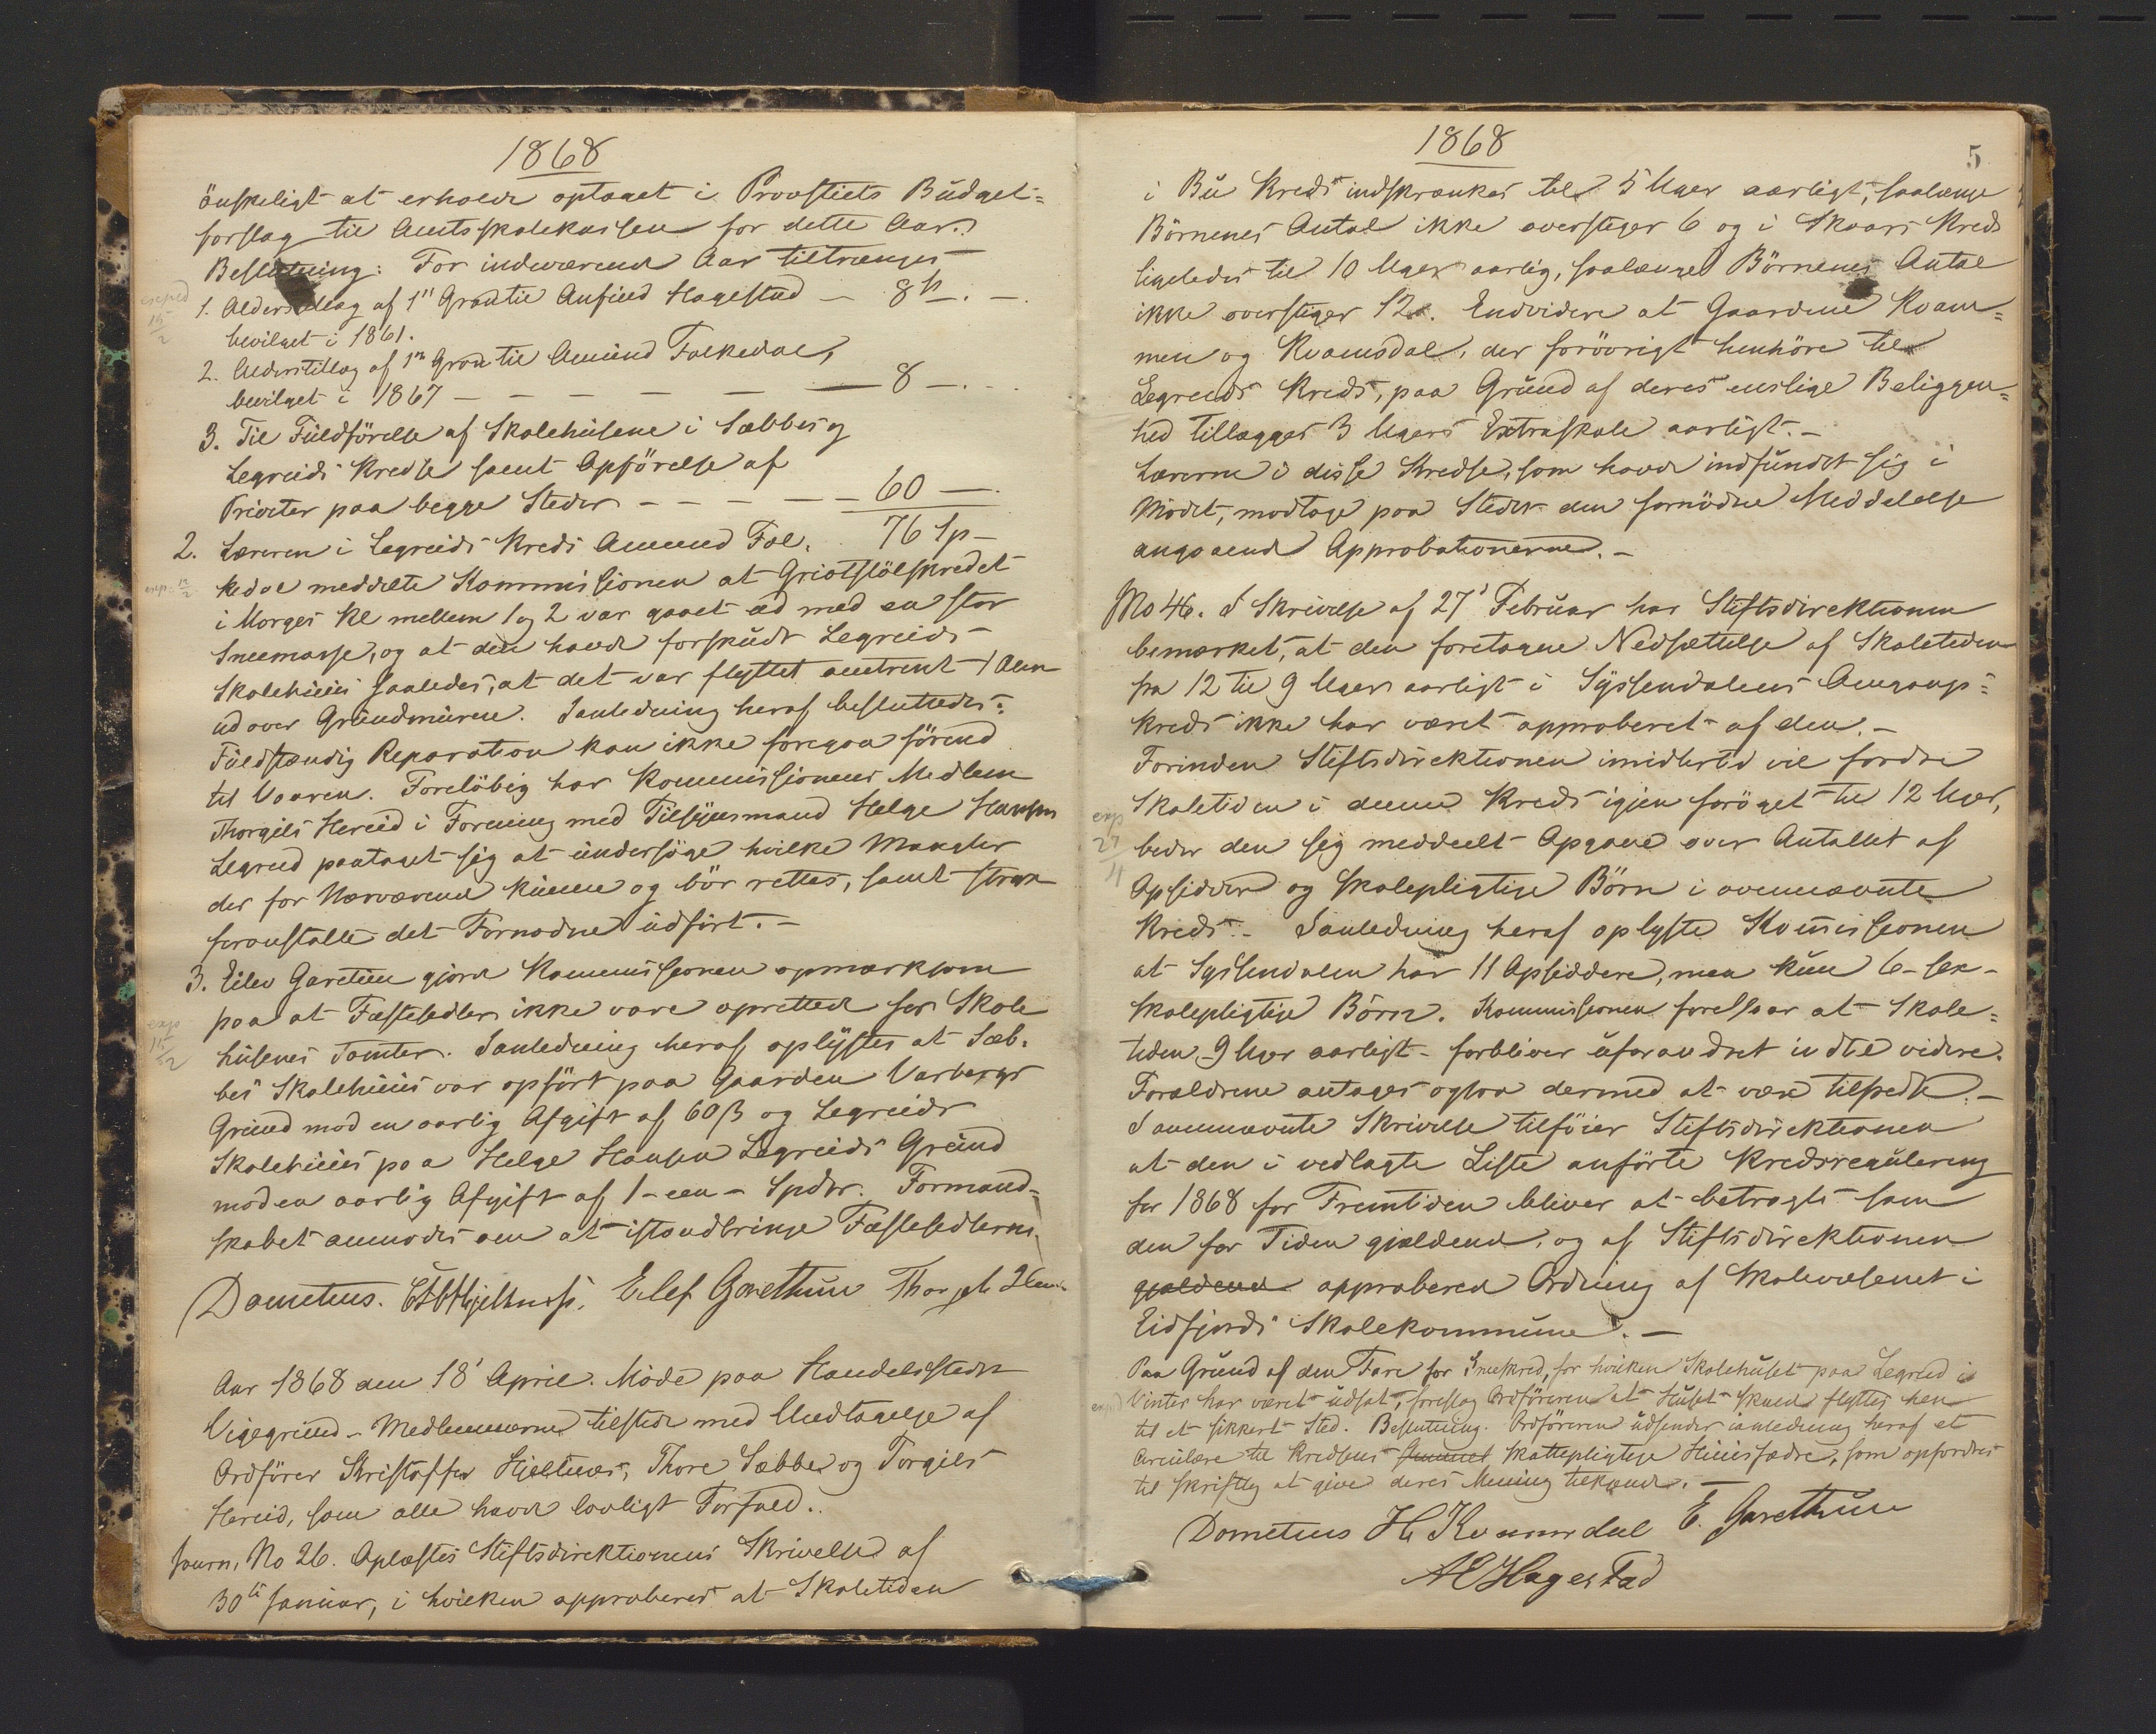 1868
önskeligt at erholde optaget i Provstiets Budget=
forslag til Amtsskolekassen for dette Aar.
Beslutning: For indeværende Aar tiltrænges
exped 15/2
1. Alderstillæg af 1ste Grad til Anfind Hagestad — 8 Sp. —.
bevilget i 1861.
2. Alderstillæg af 1ste Grad til Amund Falkedal,
bevilget i 1867 — — — — — — 8 —. -.
3. Til Fuldförelse af Skolehusene i Sæbbes og
Legreids Kredse samt Opförelse af
Priveter paa begge Steder — — — — — 60 —.
76 Sp —
2. Læreren i Legreids Kreds Amund Fal=
exp. 15/2
kedal meddelte Kommissionen at Griotstölskredet
i Morges Kl mellem 1 og 2 var gaaet ud med en stor
Sneemasse, og at den havde forskudt Legreids
Skolehuus saaledes, at det var flyttet omtrent 1 Alen
ud over Grundmuren. I anledning heraf besluttedes:
Fuldstændig Reparation kan ikke foregaa förend
til Vaaren. Forelöbig har Kommissionens Medlem
Thorgils Hereid i Forening med Tilsynsmand Helge Hansen
Legreid paataget sig at undersöge hvilke Mangler
der for Nærværende kunne og bör rettes, samt strax
foranstalte det Fornødne udfört. —
3. Eilev Garetun gjorde Kommissionen opmærksom
paa at Fæstesedler ikke vare oprettede for Skole
exp 15/2
husenes Tomter. I anledning heraf oplystes at Sæb=
bes Skolehuus var opfört paa Gaarden Varbergs
Grund mod en aarlig Afgift af 60 β og Legreids
Skolehuus paa Helge Hansen Legreids Grund
mod en aarlig Afgift af 1 - een - Spdlr. Formand-
skabet anmodes om at istandbringe Fæstesedlerne.
Dometius. Hjeltnæs. Eilef Garethun Thorgils Herei
Aar 1868 den 18' April. Möde paa Handelsstedet
Vigegrund. Medlemmerne tilstede med Undtagelse af
Ordförer Kristoffer Hjeltnæs, Thore Sæbbe og Torgils
Hereid, som alle havde lovligt Forfald.
Journ. No 26. Oplæstes Stiftsdirektionens Skrivelse af
30te Januar, i hvilken approberes at Skoletiden
1868
5
i Bu Kreds indskrænkes til 5 Uger aarligt, saalænge
Börnenes Antal ikke overstiger 6 og i Skaars Kreds
ligeledes til 10 Uger aarlig, saalænge Börnenes Antal
ikke overstiger 12. Endvidere at Gaardene Kvam=
men og Kvamsdal, der forövrigt henhöre til
Legreids Kreds, paa Grund af deres enslige Beliggen=
hed tillægges 3 Ugers Extraskole aarligt. —
Lærerne i disse Kredse, som havde indfundet sig i
Mödet, modtoge paa Stedet den fornödne Meddelelse
angaaende Approbationerne. —
No 46. I Skrivelse af 27' Februar har Stiftsdirektionen
bemærket, at den foretagne Nedsættelse af Skoletiden
fra 12 til 9 Uger aarligt i Syssendalens Omgangs=
kreds ikke har været approberet af den. —
Forinden Stiftsdirektionen imidlertid vil fordre
Skoletiden i denne Kreds igjen foröget til 12 Uger,
exp 27/4
beder den sig meddeelt Opgave over Antallet af
Opsiddere og skolepligtige Börn i ovennævnte
Kreds. — I anledning heraf oplyste Kommissionen
at Syssendalen har 11 Opsiddere, men kun 6 - sex -
skolepligtige Börn. Kommissionen foreslaar at Skole=
tiden 9 Uger aarligt - forbliver uforandret indtil videre.
Forældrene antages ogsaa dermed at være tilfreds. —
I ovennævnte Skrivelse tilföier Stiftsdirektionen
at den i vedlagte Liste anförte Kredsregulering
for 1868 for Fremtiden bliver at betragte som
den for Tiden gjældende, og af Stiftsdirektionen
gjældende approberede Ordning af Skolevæsenet i
Eidfjords Skolekommune. —
Paa Grund af den Fare for Sneeskred, for hvilken Skolehuset paa Legreid i
exped
Vinter har været udsat, foreslog Ordföreren at Huset skulde flyttes hen
til et sikkert Sted. Beslutning. Ordföreren udsender i anledning heraf et
Circulære til Kredsens skattepligtige Huusfædre, som opfordres
til skriftlig at give deres Mening tilkjende. —
Dometius H Kvamsdal E. Garethun
AE Hagestad